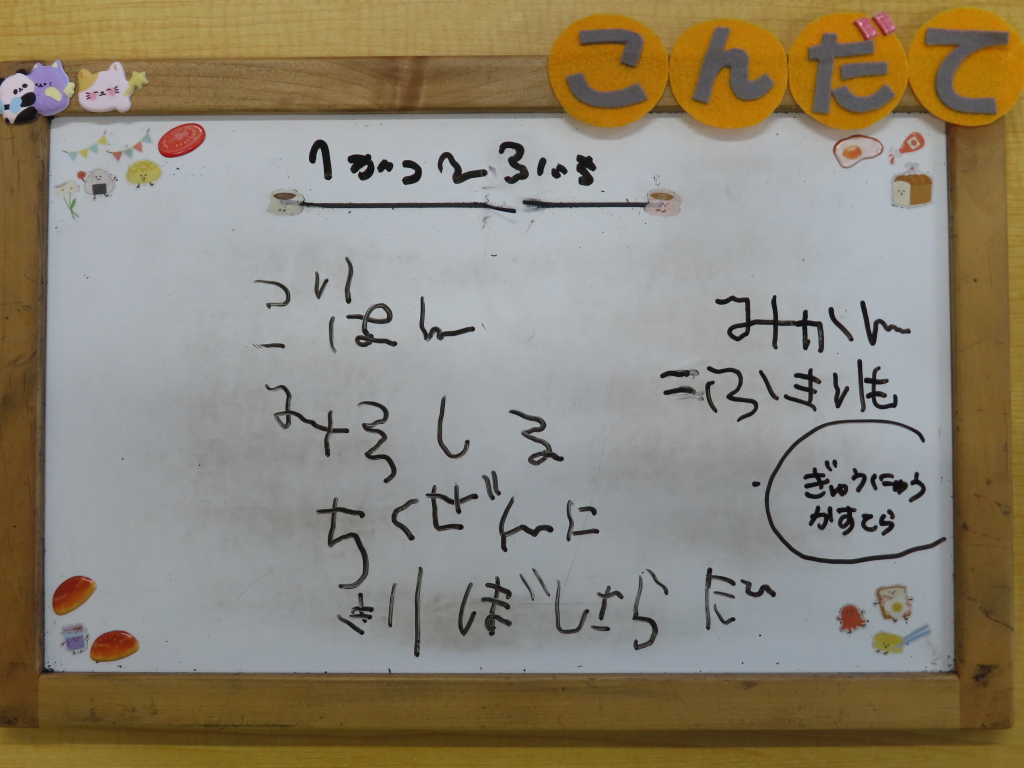 こんだて
1がつ23にち
ごはん
みそしる
ちくぜんに
きりぼしさらだ
みかん
こふきいも
ぎゅうにゅう
かすてら